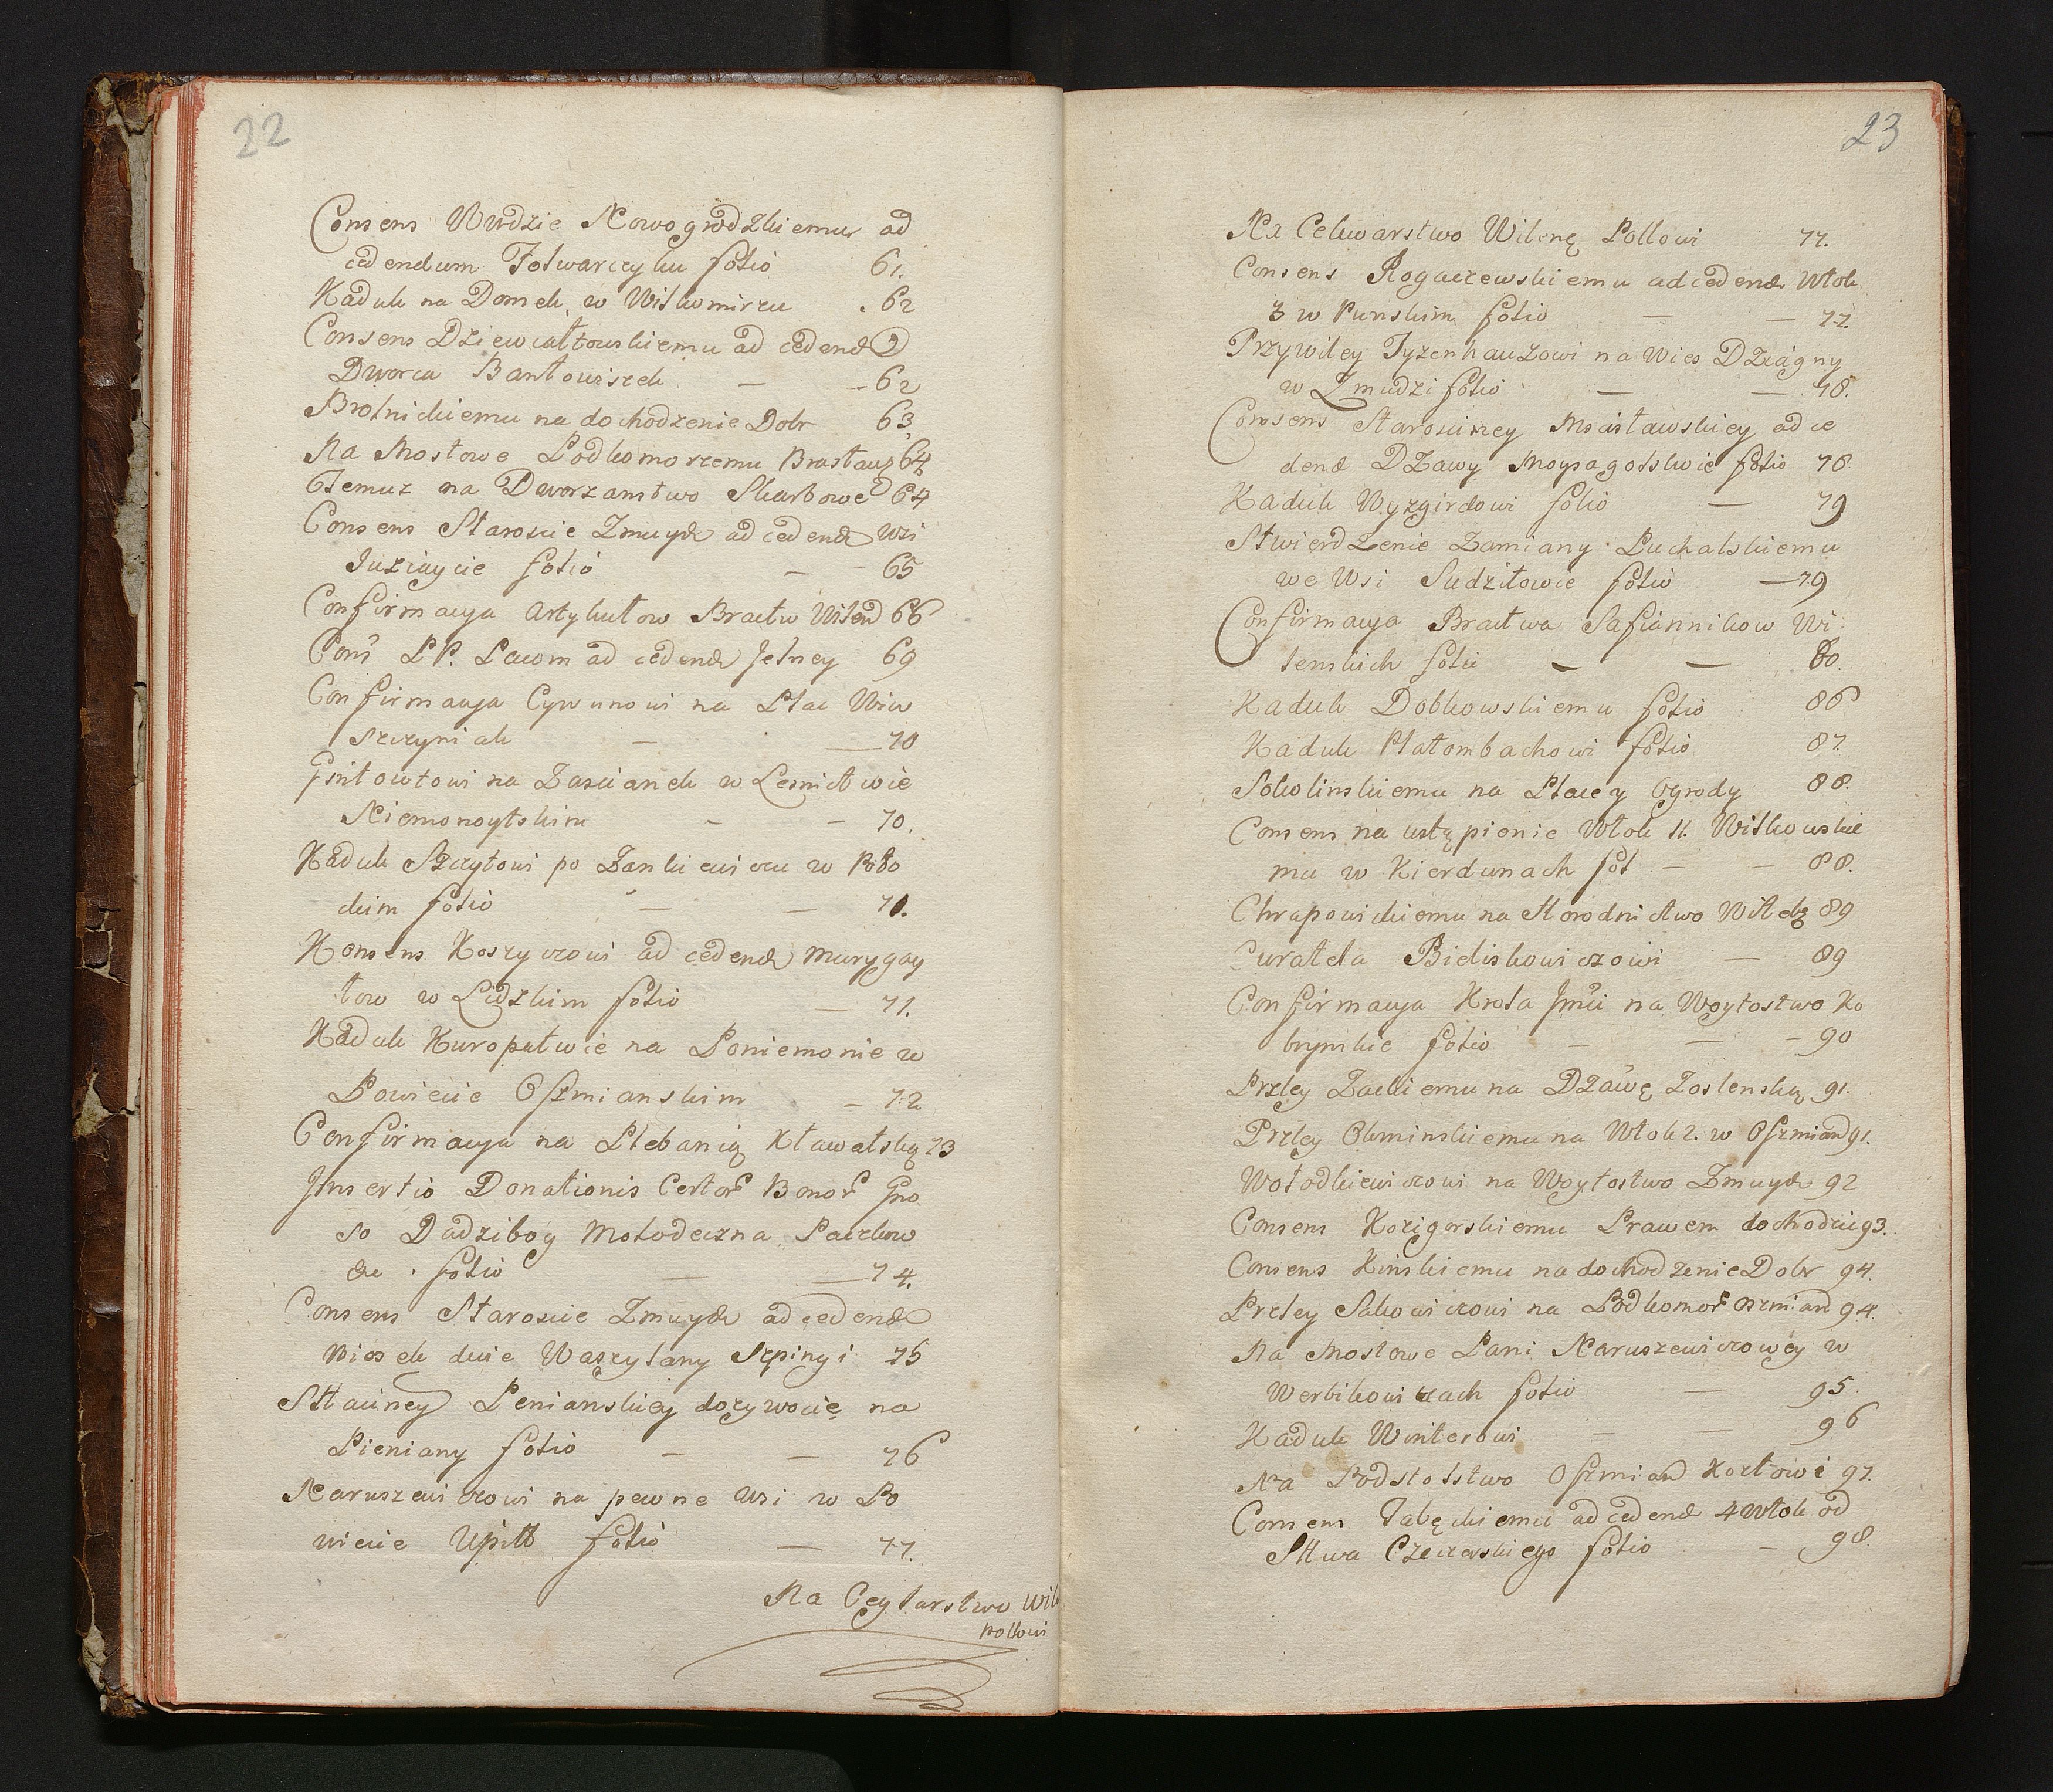 22
Consens Wudzie Nowogrodzkiemu ad
cedendum Folwarczyku folio 61.
Kaduk na Domek w Wiłkomirzu 62
Consens Dziewiałtowskiemu ad cedend
Dworca Bantowiszek — 62
Brolnickiemu na dochodzenie Dobr 63
Na Mostowe Podkomorzemu Brasław 64
Temuz na Dworzanstwo Skarbowe 64
Consens Staroscie Zmuyd ad cedend Wsi
Juziaycie folio — 65
Confirmacya Artykułow Bractw Wilen 66
Cons PP. Pacom ad cedend Jelney 69
Confirmacya Cywunowi na Plac Wiw
szczyniak — 70
Gintowtowi na Zascianek w Lesnictwie
Niemonoytskim — 70.
Kaduk Szczytowi po Zankiewiczu w Poło
ckim folio — 71.
Konsens Koszyczowi ad cedend Murygay
łow w Lidzkim folio — 71.
Kaduk Kuropatwie na Poniemonie w
Powiecie Oszmianskim — 72
Confirmacya na Plebanią Kławatską 73
Insertio Donationis Certor Bonor Gno
so Dadzibog Mołodeczna Paczkow
&c. folio — 74.
Consens Staroscie Zmuyd ad cedend
Wiosek dwie Waszylany Szpingi 75
Sttaciney Penianskiey dozywocie na
Pieniany folio — 76
Naruszewiczowi na pewne Wsi w Po
wiecie Upitt folio — 77.
Na Ceglarstwo Wil
Pollowi
23
Na Celwarstwo Wilenę Pollowi 77.
Consens Rogaczewskiemu ad cedend Włok
3 w Punskim folio — 77.
Przywiley Tyzenhauzowi na Wies Dziagny
w Zmudzi folio — 78.
Consens Starosciney Mscisławskiey ad ce
dend Dzawy Moysagolskwie folio 78.
Kaduk Wyzgirdowi folio — 79
Stwierdzenie Zamiany Puchalskiemu
we Wsi Sudziłowie folio — 79
Confirmacya Bractwa Safiannikow Wi
lenskich folio — 80.
Kaduk Dobkowskiemu folio 86
Kaduk Płatombachowi folio 87.
Sokolinskiemu na Place y Ogrody 88.
Consens na ustąpienie Włok 11. Witkowskie
mu w Kierdunach fol — 88.
Chrapowickiemu na Horodnictwo Witebg 89
Curatela Bieliskowiczowi — 89
Confirmacya Krola Jmci na Woytostwo Ko
brynskie folio — 90
Przley Zackiemu na Dzawę Zoslenską 91.
Przley Okminskiemu na Włok 2. w Oszmian 91.
Wołodkiewiczowi na Woytostwo Zmuyd 92
Consens Kozigorskiemu Prawem dochodzic 93.
Consens Kinskiemu na dochodzenie Dobr 94.
Przley Sakowiczowi na Podkomor Oszmian 94.
Na Mostowe Pani Naruszewiczowey w
Werbikowiczach folio — 95.
Kaduk Winterowi — 96
Na Podstolstwo Oszmian Kozłowi 97.
Consens Tabęckiemu ad cedend 4 Włok od
Sttwa Czeczerskiego folio — 98.